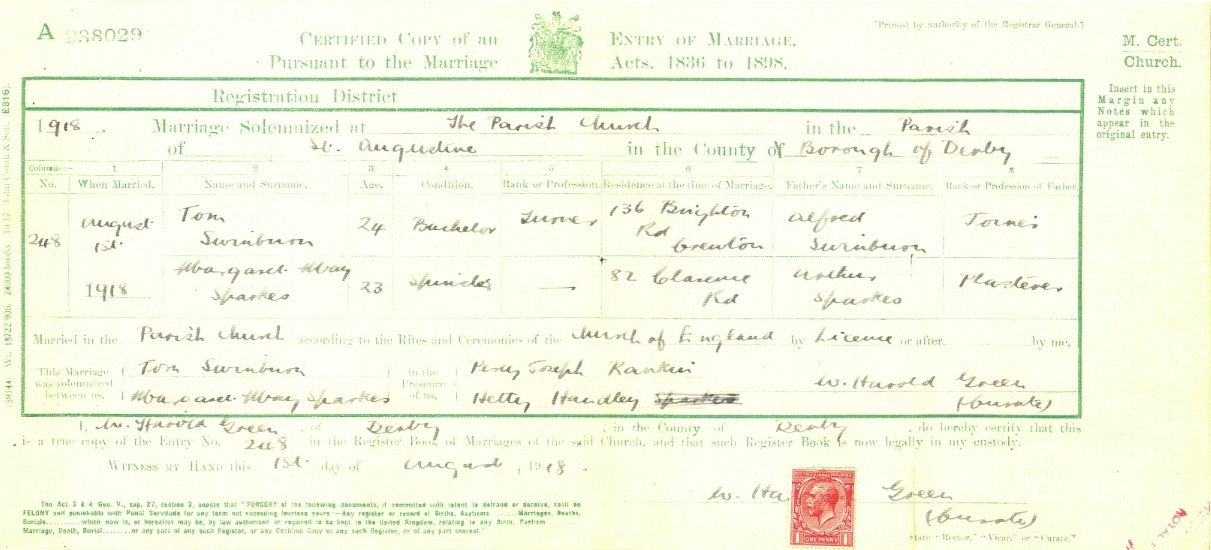 A 238029
[Printed by authority of the Registrar General.]
CERTIFIED COPY OF AN ENTRY OF MARRIAGE.
PURSUANT TO THE MARRIAGE ACTS, 1836 TO 1898.
M. Cert.
Church.
Insert in this
Margin any
Notes which
appear in the
original entry.
Registration District
1918. Marriage Solemnized at The Parish Church in the Parish
of St. Augustine in the County of Borough of Derby
Columns:— 1 2 3 4 5 6 7 8
No. When Married. Name and Surname. Age. Condition. Rank or Profession. Residence at the time of Marriage. Father's Name and Surname. Rank or Profession of Father.
248 August 1st 1918 Tom Swinburn 24 Bachelor Turner 136 Brighton Rd Alfred Swinburn
Margaret May Sparkes 23 Spinster — 82 Clarence Rd Arthur Sparkes Plasterer
Married in the Parish Church according to the Rites and Ceremonies of the Church of England by Licence or after by me,
This Marriage was solemnized between us, Tom Swinburn in the Presence of us, Percy Joseph Rankin W. Harold Green
Margaret May Sparkes Hetty Handley Sparkes (Curate)
I, W. Harold Green of Derby, in the County of Derby, do hereby certify that this
is a true copy of the Entry No. 248 in the Register Book of Marriages of the said Church, and that such Register Book is now legally in my custody.
WITNESS MY HAND this 1st day of August, 1918.
W. Ha Green
(Curate)
State "Rector," "Vicar," or "Curate."
ONE PENNY
The Act 3 & 4 Geo. V., cap. 27, section 3, enacts that "FORGERY of the following documents, if committed with intent to defraud or deceive, shall be
FELONY and punishable with Penal Servitude for any term not exceeding fourteen years:—Any register or record of Births, Baptisms.........Marriages, Deaths,
Burials.........which now is, or hereafter may be, by law authorised or required to be kept in the United Kingdom, relating to any Birth, Baptism
Marriage, Death, Burial.........or any part of any such Register, or any Certified Copy of any such Register, or of any part thereof."